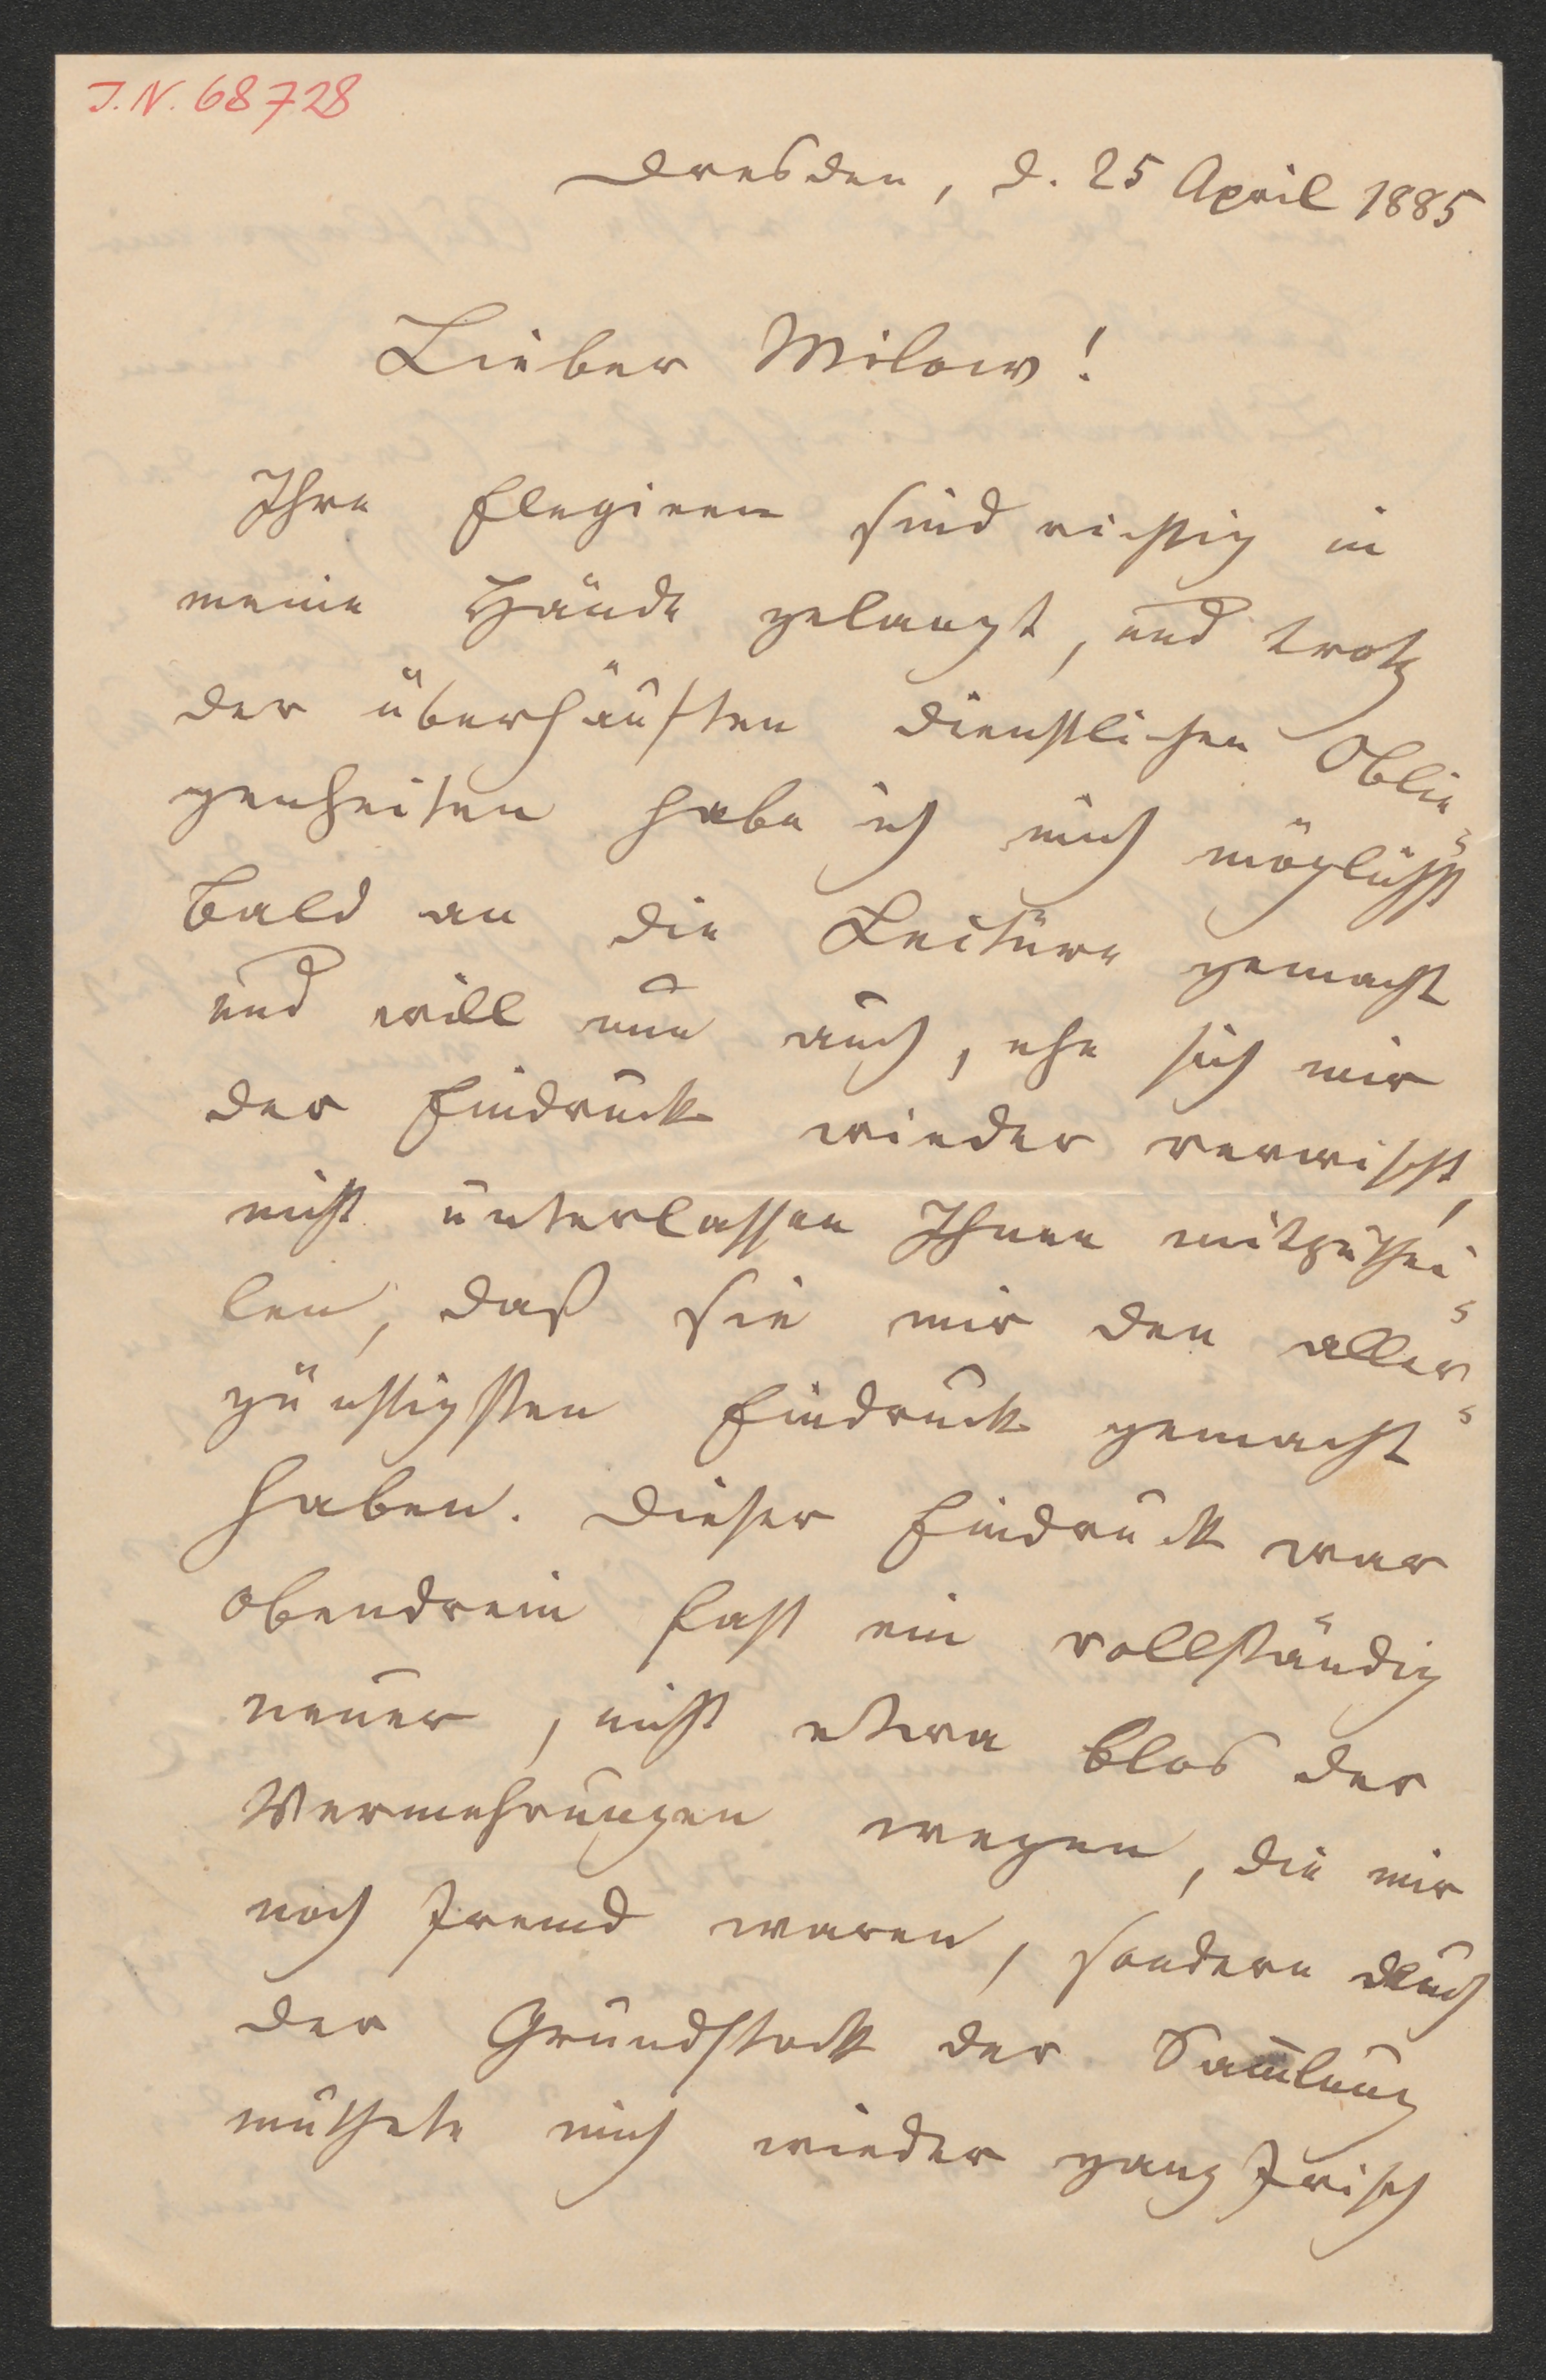 J. N. 68728
Dresden, d. 25 April 1885
Lieber Milow!
Ihre Elegieen sind richtig in
meine Hände gelangt, und trotz
der überhäuften dienstlichen Oblie-
genheiten habe ich mich möglichst
bald an die Lectüre gemacht
und will nun auch, ehe sich mir
der Eindruck wieder verwischt,
nicht unterlassen Ihnen mitzuthei-
len, daß sie mir den aller-
günstigsten Eindruck gemacht
haben. Dieser Eindruck war
obendrein fast ein vollständig
neuer, nicht etwa blos der
Vermehrungen wegen, die mir
noch fremd waren, sondern auch
der Grundstock der Sam̅lung
muthete mich wieder ganz frisch